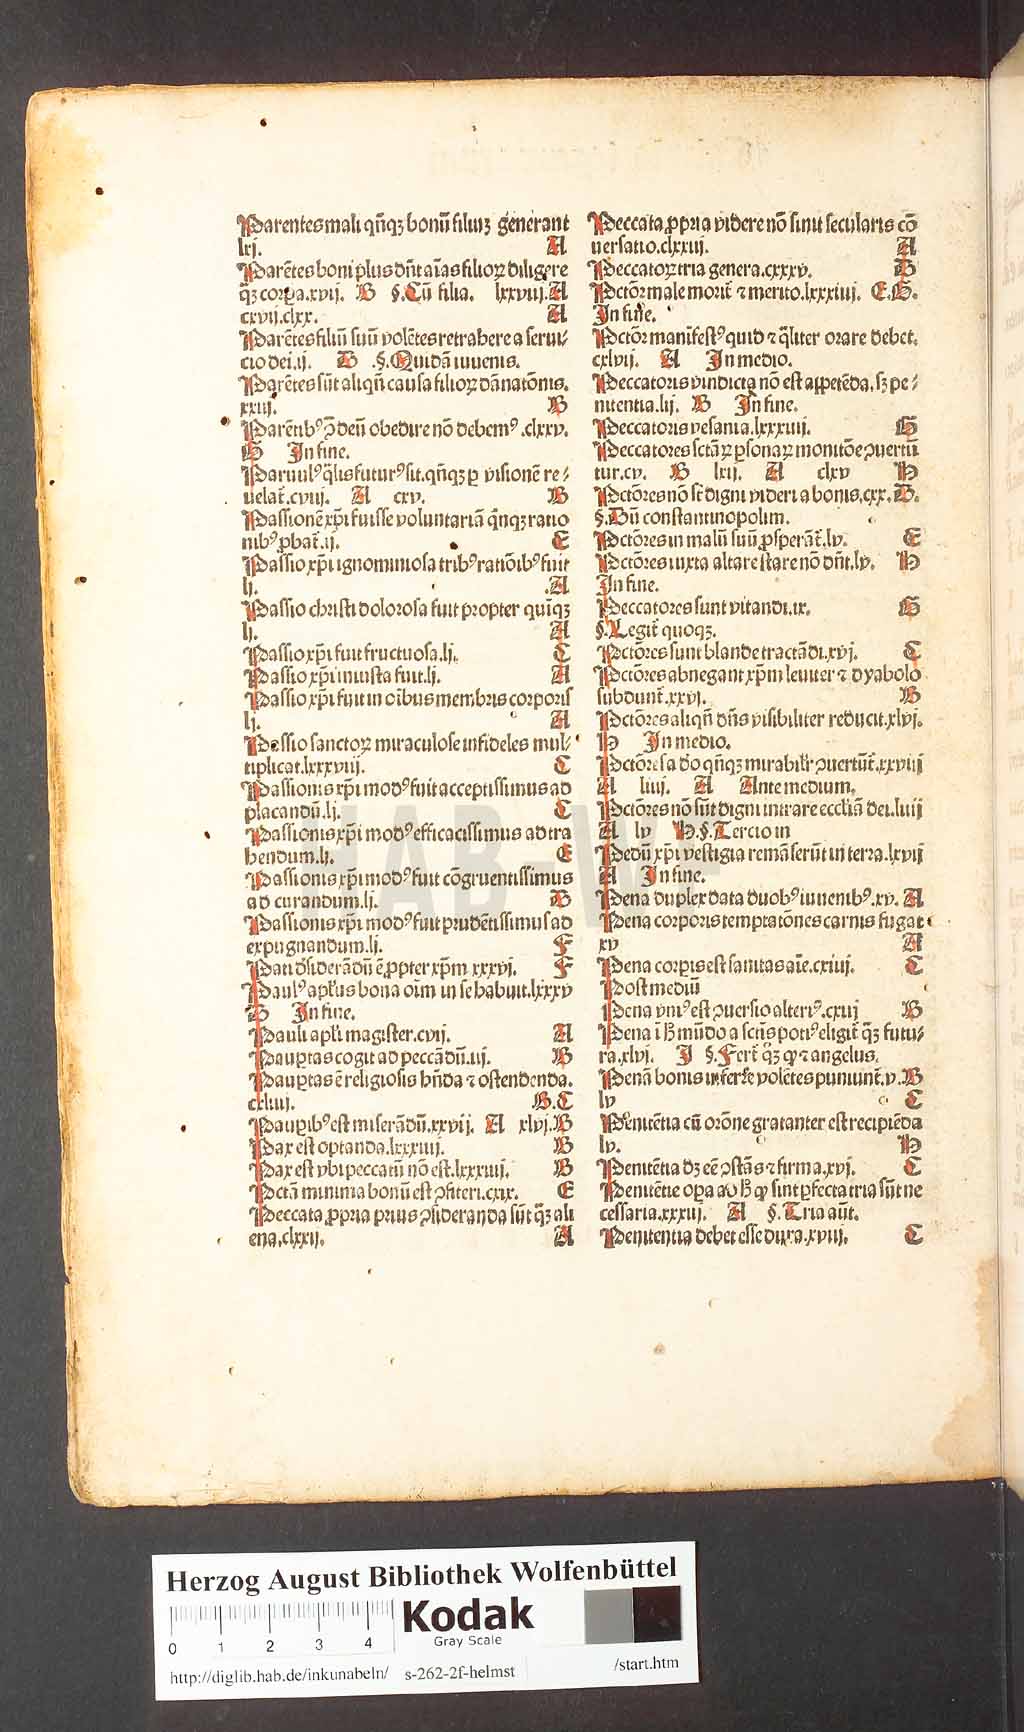 Parentes mali qñqꝫ bonũ filiuꝫ generant
lxj. A
Parẽtes boni plus dñt aĩas filioꝝ diligere
q̃ꝫ corꝑa.xvij. B §.Cũ filia. lxxviij.A
cxvij.clxx. A
Parẽtes filiũ suũ volẽtes retrahere a serui⸗
cio dei.ij. B .§.Quidã iuuenis.
Parẽtes sũt aliqñ causa filioꝝ dãnatõnis.
xxiij. B
Parẽtibꝰ ꝯ̃ deũ obedire nõ debemꝰ.clxxv.
G In fine.
Paruulꝰ q̃lis futurꝰ sit.qñqꝫ ꝑ visionẽ re⸗
uelat̃.cviij. A cxv. B
Passionẽ xp̃i fuisse voluntariã q̃nqꝫ ratio
nibꝰ ꝓbat̃.ij. E
Passio xp̃i ignominiosa tribꝰ ratõibꝰ fuit
lj. .A
Passio christi dolorosa fuit propter quĩqꝫ
lj. A
Passio xp̃i fuit fructuosa.lj. C
Passio xp̃i iniusta fuit.lj. A
Passio xp̃i fuit in oĩbus membris corporis
lj. A
Passio sanctoꝝ miraculose infideles mul⸗
tiplicat.lxxxviij. C
Passionis xp̃i modꝰ fuit acceptissimus ad
placandũ.lj. C
Passionis xp̃i modꝰ efficacissimus ad tra
hendum.lj. E
Passionis xp̃i modꝰ fuit cõgruentissimus
ad curandum.lj. B
Passionis xp̃i modꝰ fuit prudẽtissimus ad
expugnandum.lj. F
Pati dʼsiderãdũ ẽ ꝓpter xp̃m.xxxvj. F
Paulꝰ apl̃us bona oĩm in se habuit.lxxxv
B In fine.
Pauli apl̃i magister.cvij. A
Pauꝑtas cogit ad peccãdũ.iij. B
Pauꝑtas ẽ religiosis hñda ⁊ ostendenda.
cxliiij. B.C
Pauꝑibꝰ est miserãdũ.xxvij. A xlvj.B
Pax est optanda.lxxxiiij. B
Pax est vbi peccatũ nõ est.lxxxiiij. B
Pctã minima bonũ est ꝯfiteri.cxix. E
Peccata ꝓpria prius ꝯsideranda sũt q̃ꝫ ali
ena.clxxij. A
Peccata ꝓpria videre nõ sinit secularis cõ
uersatio.clxxiij. A
Peccatoꝝ tria genera.cxxxv. B
Pctõꝝ male morit̃ ⁊ merito.lxxxiiij. E.G.
In fine.
Pctõꝝ manifestꝰ quid ⁊ q̃liter orare debet.
cxlvij. A In medio.
Peccatoris vindicta nõ est appetẽda.sꝫ pe⸗
nitentia.lij. B In fine.
Peccatoris vesania.lxxxiiij. G
Peccatores sctãꝝ ꝑsonaꝝ monitõe ꝯuertũ
tur.cv. B lxij. A clxv H
Pctõres nõ st̃ digni videri a bonis.cxx.B.
§.Dũ constantinopolim.
Pctõres in malũ suũ ꝓsperãt̃.lv. E
Pctõres iuxta altare stare nõ dñt.lv. H
In fine.
Peccatores sunt vitandi.ix. G
§.Legit̃ quoqꝫ.
Pctõres sunt blande tractãdi.xvj. C
Pctõres abnegant xp̃m leuiter ⁊ dyabolo
subdunt̃.xxvj. B
Pctõres aliqñ dñs visibiliter reducit.xlvj.
H In medio.
Pctõres a dõ qñqꝫ mirabilr̃ ꝯuertũt̃.xxviij
A liiij. A Ante medium.
Pctõres nõ sũt digni intrare eccl̃iã dei.liiij
A lv H.§.Tercio in
Pedũ xp̃i vestigia remãserũt in terra.lxvij
A In fine.
Pena duplex data duobꝰ iuuenibꝰ.xv. A
Pena corporis temptatõnes carnis fugat
xv A
Pena corpis est sanitas aĩe.cxiij. C
Post mediũ
Pena vniꝰ est ꝯuersio alteriꝰ.cxij B
Pena ĩ hʼ mũdo a scĩs potiꝰ eligit̃ q̃ꝫ futu⸗
ra.xlvj. I §.Fert̃ q̃ꝫ ꝙ ⁊ angelus.
Penã bonis inferre volẽtes puniunt̃.v.B
lv C
Penitẽtia cũ orõne gratanter est recipiẽda
lv. H
Penitẽtia dʼꝫ eẽ ꝯstãs ⁊ firma.xvj. C
Penitẽtie oꝑa ad hʼ ꝙ sint ꝑfecta tria sũt ne
cessaria.xxxiij. A §.Tria aũt.
Penitentia debet esse dura.xviij. C
HAB-WF
Herzog August Bibliothek Wolfenbüttel
0 1 2 3 4
Kodak
Gray Scale
http://diglib.hab.de/inkunabeln/ s-262-2f-helmst /start.htm